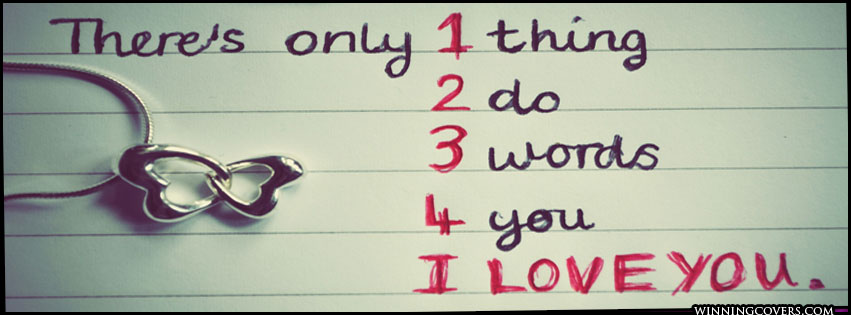 There's only 1 thing
2 do
3 words
4 you
I LOVE YOU.
WINNINGCOVERS.COM